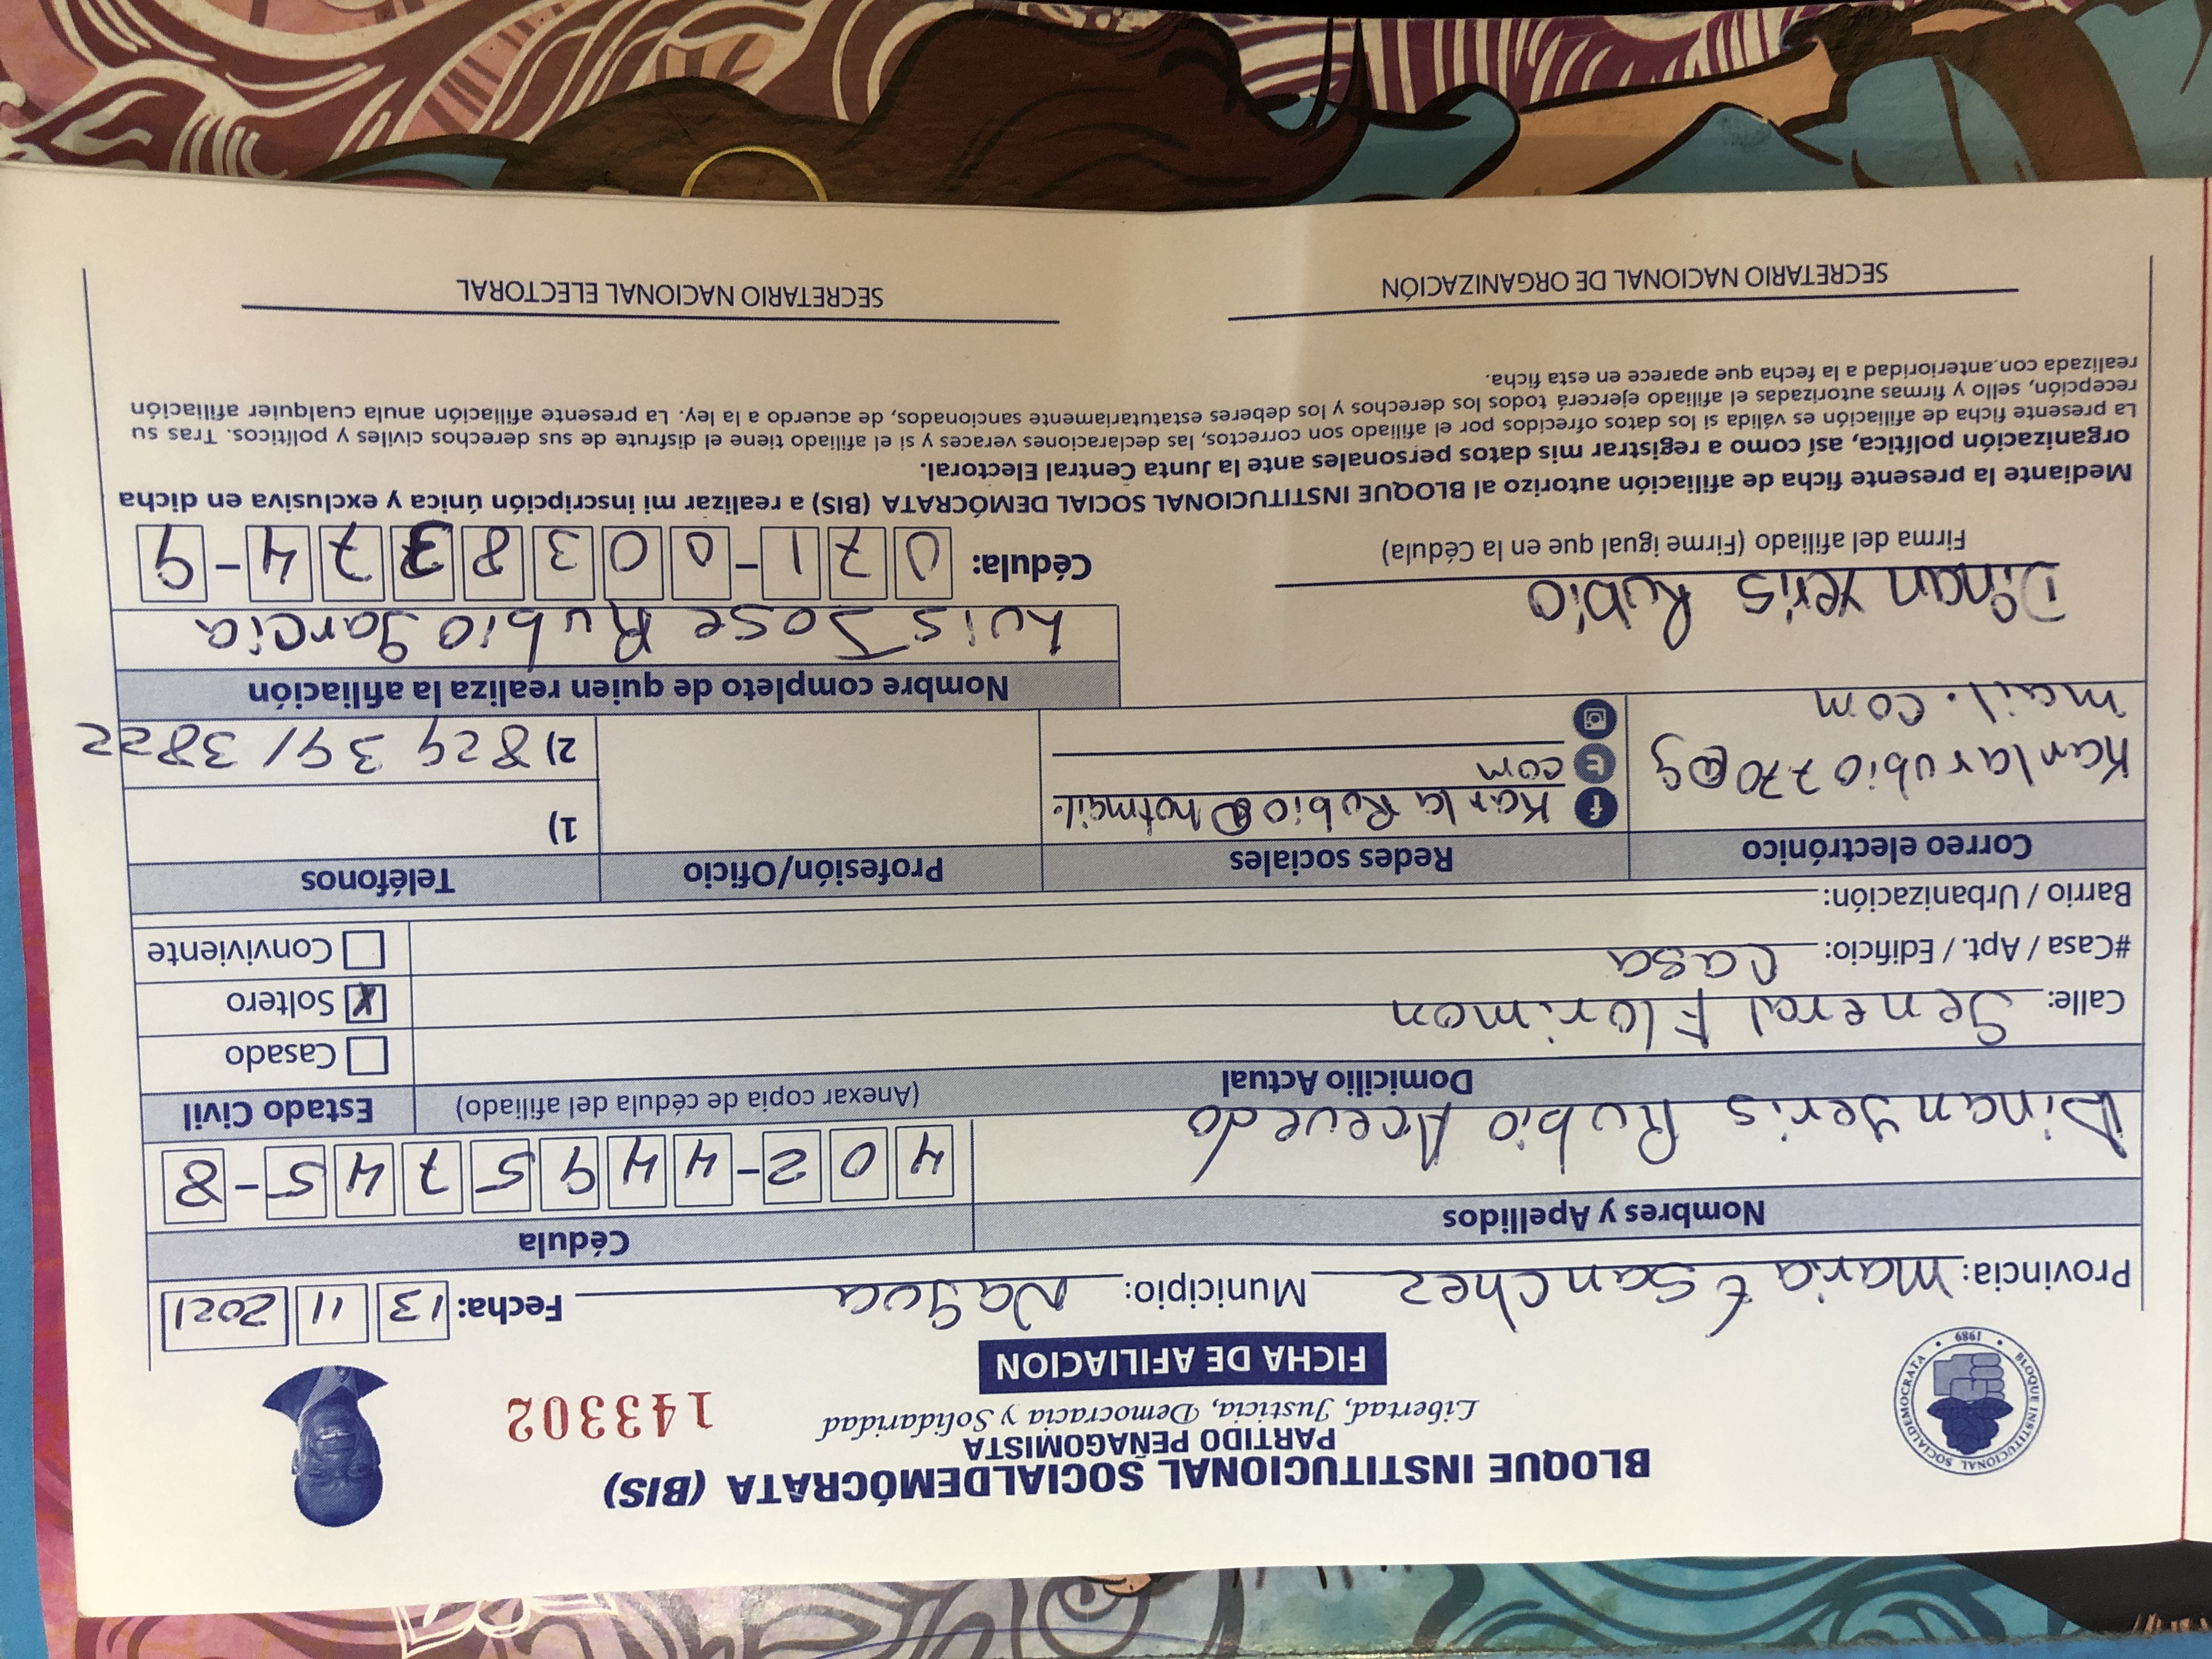 BLOQUE INSTITUCIONAL SOCIALDEMÓCRATA (BIS)
PARTIDO PEÑAGOMISTA
Libertad, Justicia, Democracia y Solidaridad
143302
FICHA DE AFILIACION
BLOQUE INSTITUCIONAL SOCIALDEMOCRATA
1989
Provincia: Maria t Sanchez Municipio: Nagua Fecha: 13 11 2021
Nombres y Apellidos Cédula
Dinanyeris Rubio Acevedo 402-4449574 5-8
Domicilio Actual (Anexar copia de cédula del afiliado) Estado Civil
Calle: General Florimon
Casado
#Casa / Apt. / Edificio: Casa
X Soltero
Barrio / Urbanización:
Conviviente
Correo electrónico Redes sociales Profesión/Oficio Teléfonos
Karlarubio770@g
mail.com
Karla Rubio@hotmail.
com
1)
2) 829 391 3822
Nombre completo de quien realiza la afiliación
Luis Jose Rubio Garcia
Dinanyeris Rubio
Firma del afiliado (Firme igual que en la Cédula)
Cédula: 071-0038374-9
Mediante la presente ficha de afiliación autorizo al BLOQUE INSTITUCIONAL SOCIAL DEMÓCRATA (BIS) a realizar mi inscripción única y exclusiva en dicha
organización política, así como a registrar mis datos personales ante la Junta Central Electoral.
La presente ficha de afiliación es válida si los datos ofrecidos por el afiliado son correctos, las declaraciones veraces y si el afiliado tiene el disfrute de sus derechos civiles y políticos. Tras su
recepción, sello y firmas autorizadas el afiliado ejercerá todos los derechos y los deberes estatutariamente sancionados, de acuerdo a la ley. La presente afiliación anula cualquier afiliación
realizada con anterioridad a la fecha que aparece en esta ficha.
SECRETARIO NACIONAL DE ORGANIZACIÓN
SECRETARIO NACIONAL ELECTORAL